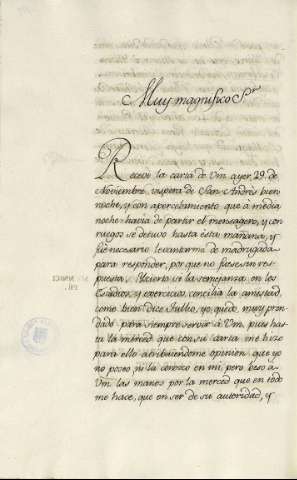 Muy magnifico Sor
Recevi la carta de Vm ayer 29. de
Noviembre, vispera de San Andrès bien
noche, y con apercebimiento que à media
noche havia de partir el mensagero, y con
ruegos se detuvo hasta esta mañana, y
fue necesario levantarme de madrugada
para responder, por que no fuese sin res-
puesta. Y cierto si la semejanza en los
Estudios, y exercicios, concilia la amistad,
como bien dice Tullio, yo quedo muy pren-
dado para siempre servir à Vm, pues has-
ta la merced que con su carta me hizo
para ello atribuiendome opinion que yo
no poseo, ni la conozco en mi, pero beso a
Vm las manos por la merced que en todo
me hace, que en ser de su autoridad, y